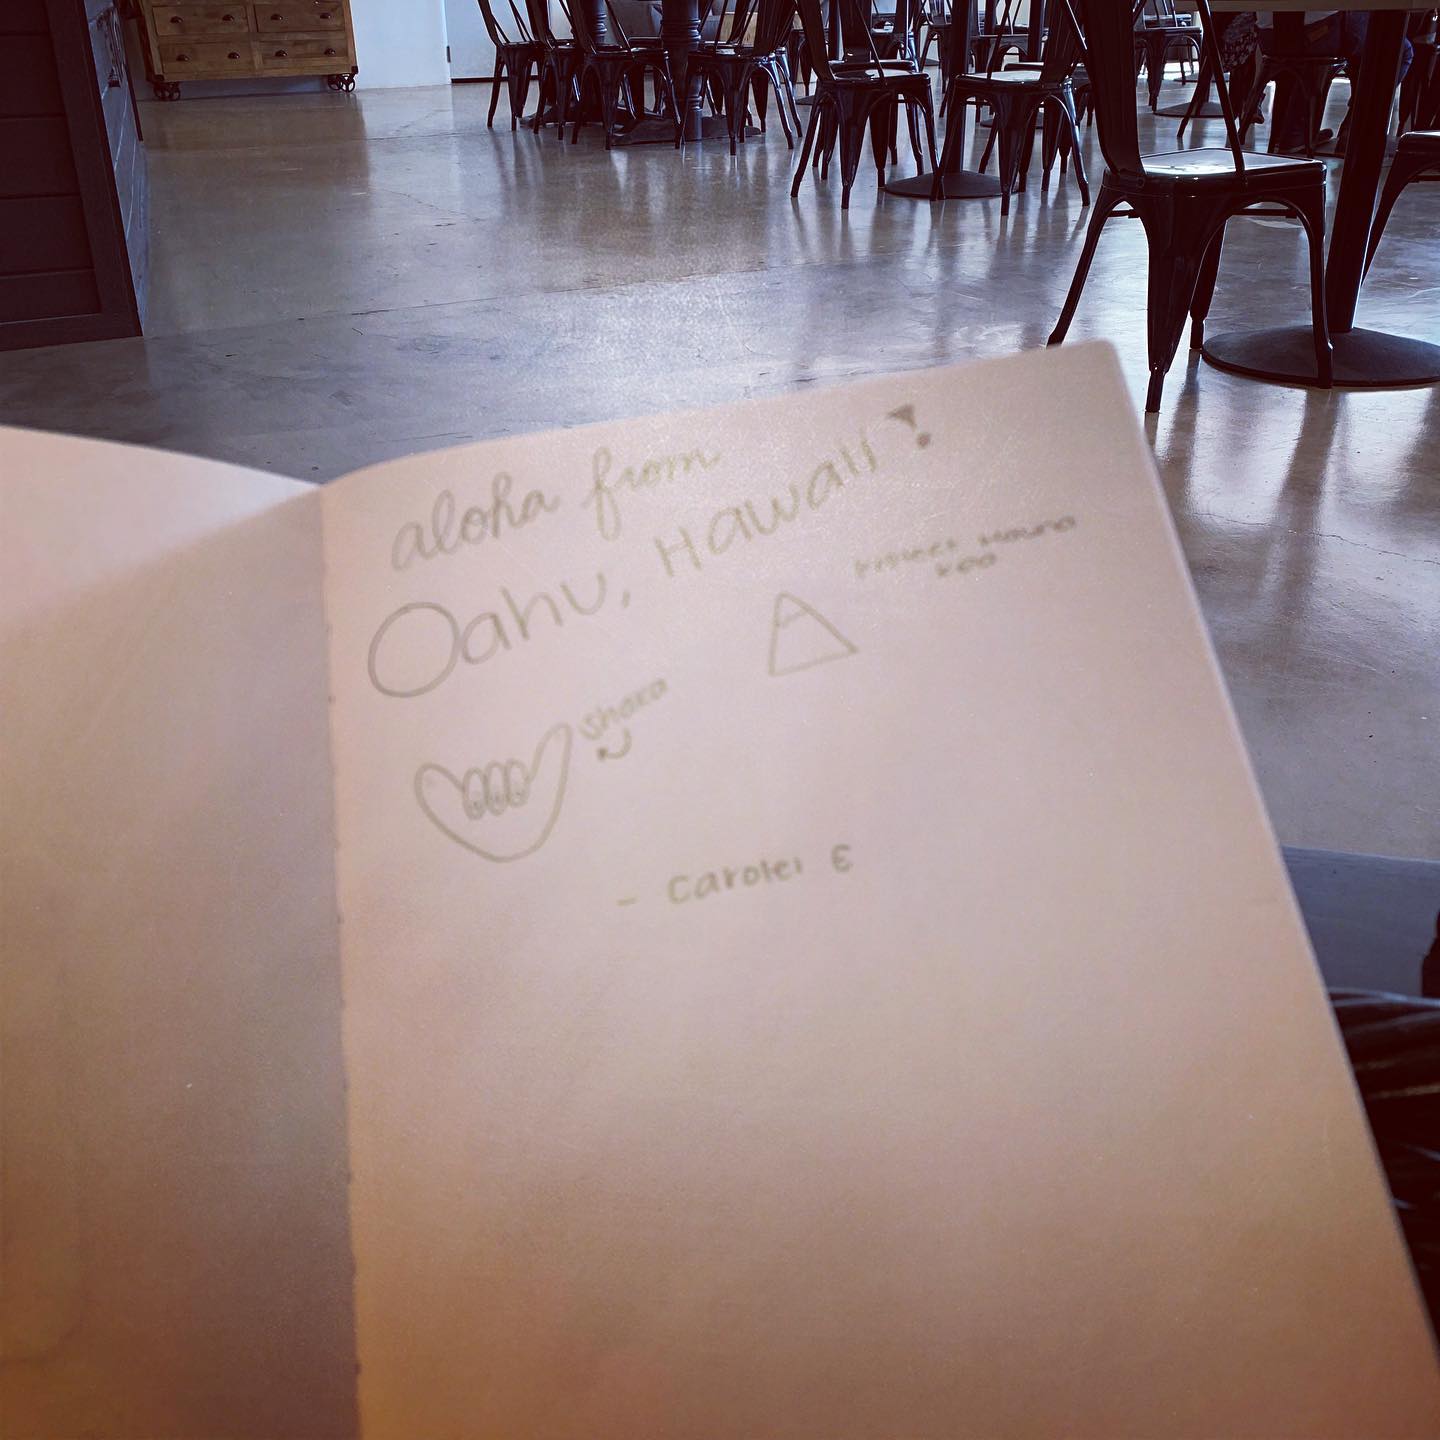 aloha from
Oahu, Hawaii!
Protect Mauna
Kea
Shaka
- Carolei E